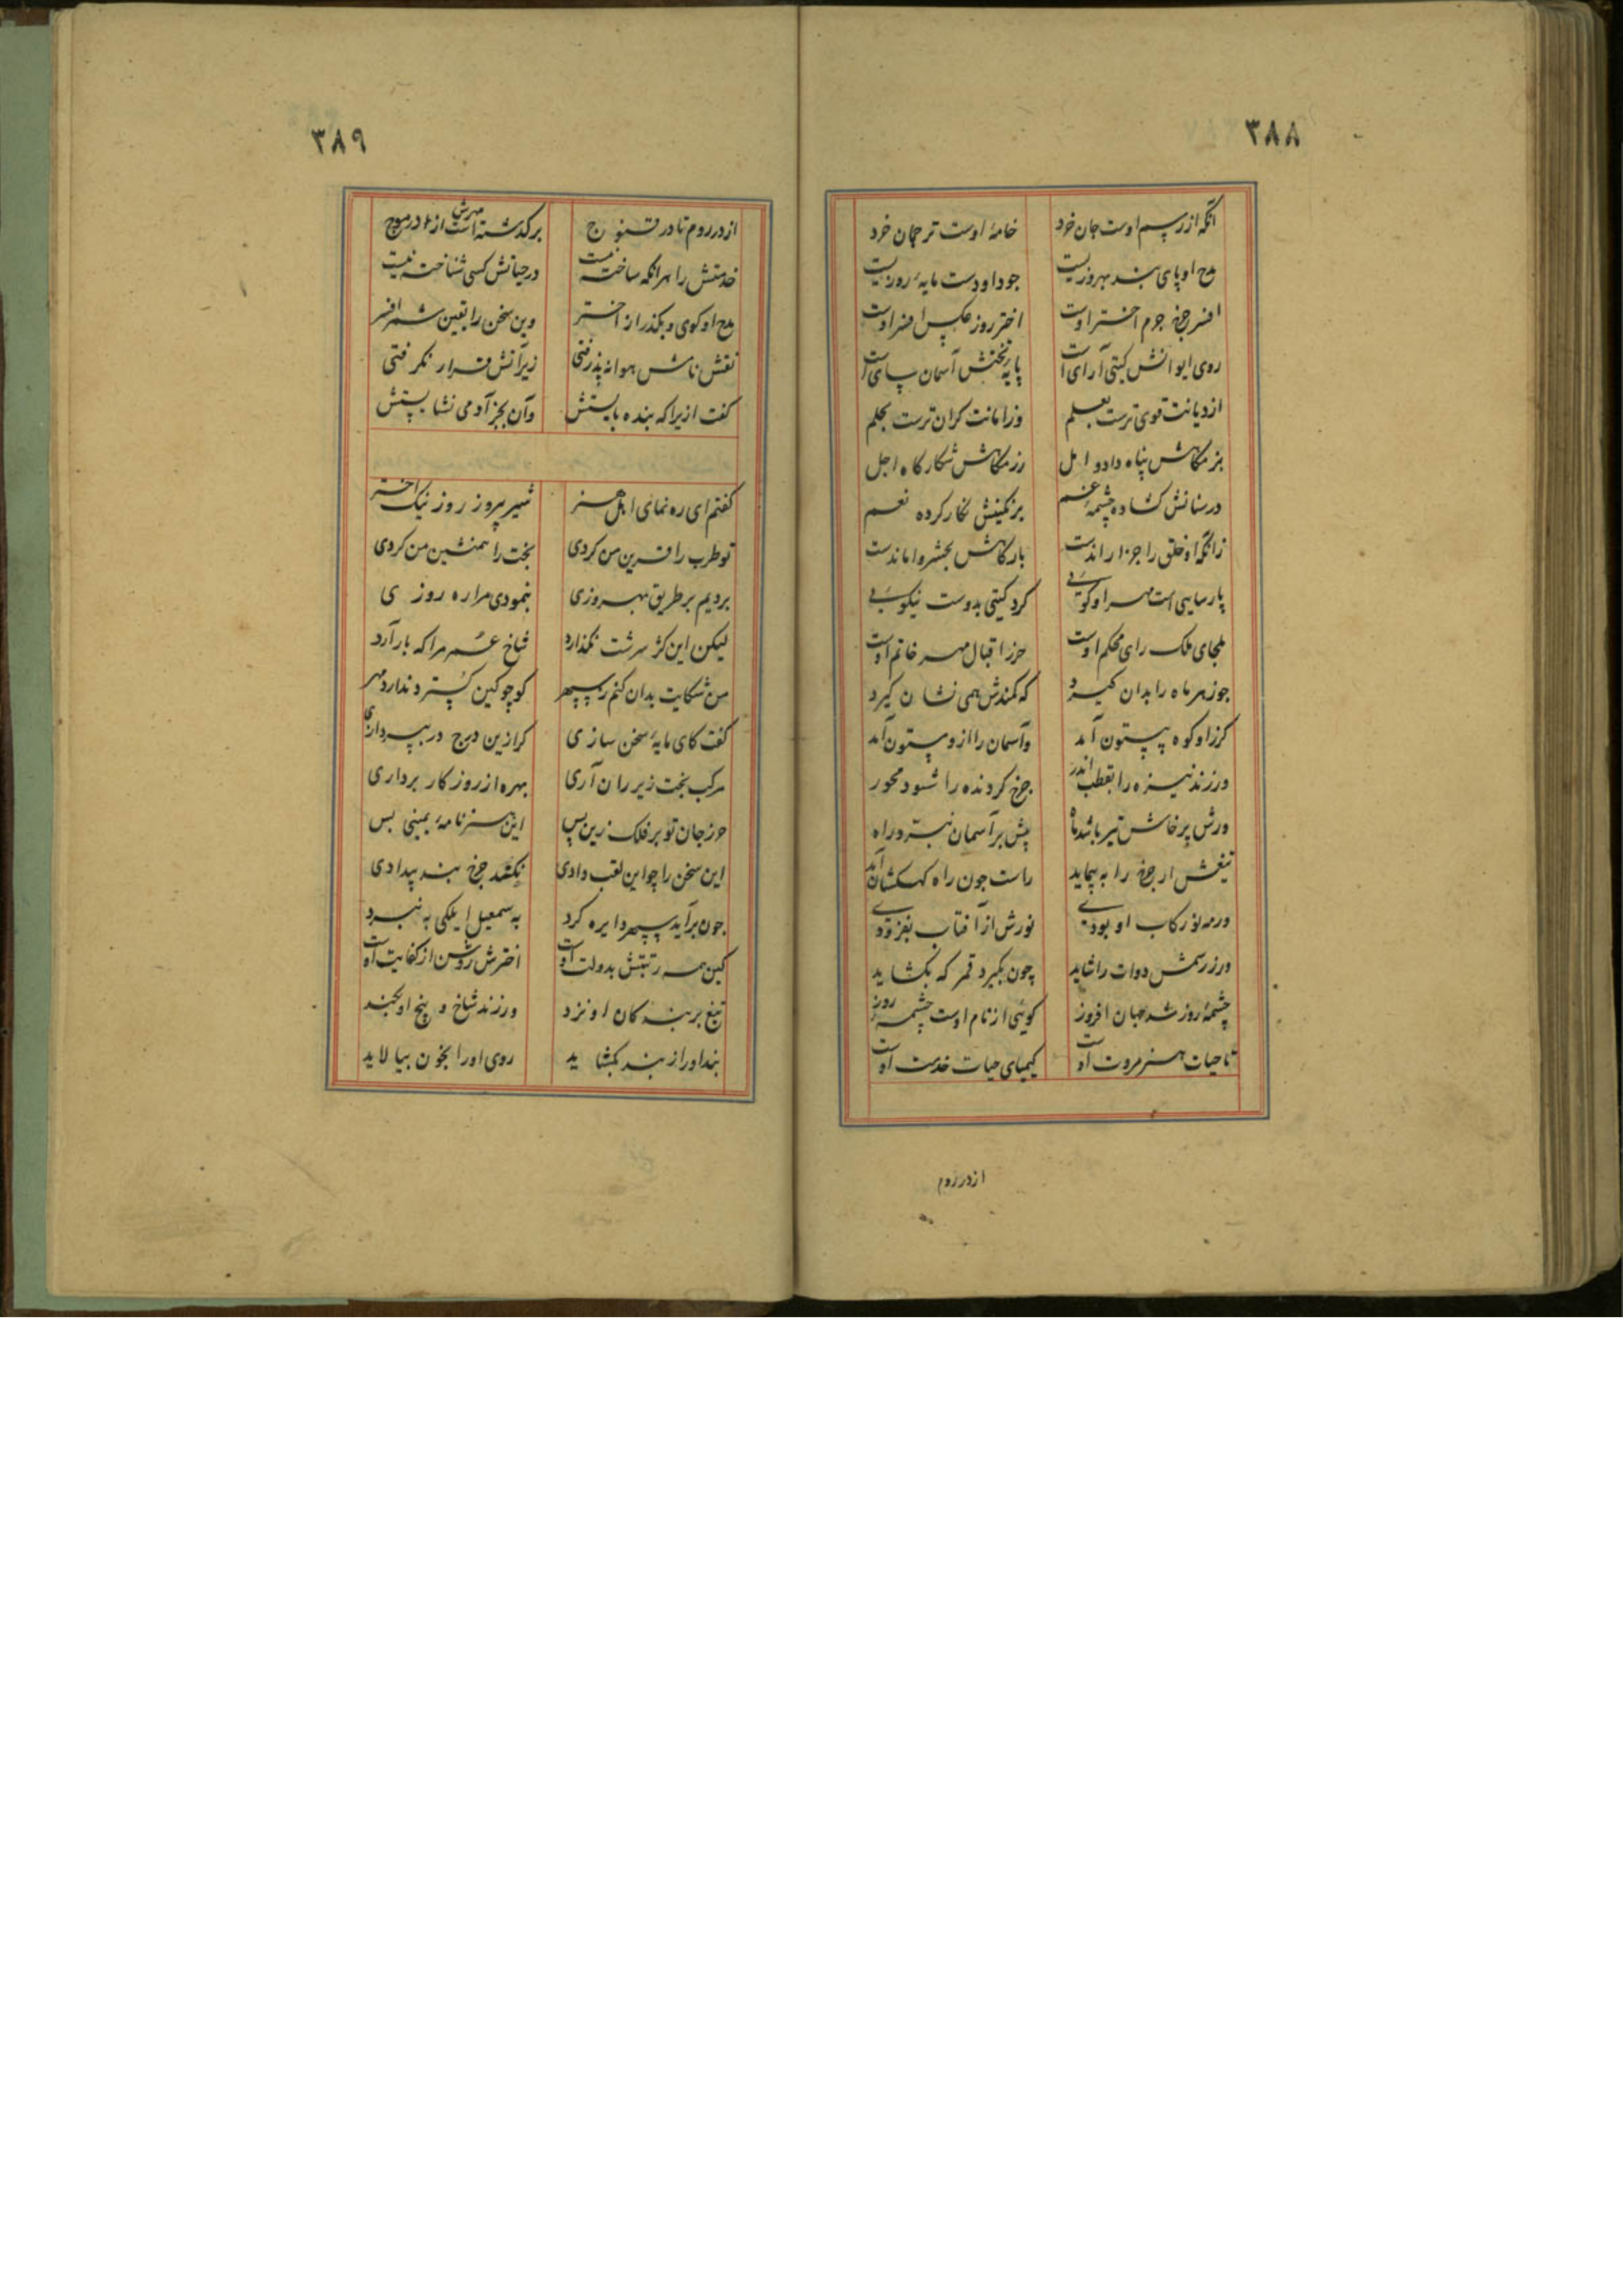 ٣٨٨
آنکه از رسم اوست جان خرد خامهٔ اوست ترجمان خرد
مدح او پای بند بهروزیست جود او دست مایهٔ روزیست
افسر چرخ جرم اختر اوست اختر روز عکس افسر اوست
روی ایوانش کیتی آرای است پایهٔ تختش آسمان سای است
از دیانت قوی ترست بعلم وز امانت کران ترست بحلم
بزمکاهش پناه داد و امل رزمکاهش شکارکاه اجل
در سنانش کشاده چشمهٔ غم بر نکینش نکار کرده نعم
زانکه او خلق را جزا راندست بارکاهش بحشر وا ماندست
پارسایی است مهر او کویی کرد کیتی بدوست نیکویی
ملجای ملک رای محکم اوست حرز اقبال مهر خاتم اوست
جوزهر ماه را بدان کیرد که کمندش همی نشان کیرد
کرز او کوه بیستون آمد وآسمان را ازو ستون آمد
ور زند نیزه را بقطب اندر چرخ کردنده را شود محور
ورش پرخاش تیر باشد ماه پیش بر آسمان نبرد راه
تیغش ار چرخ را به پیماید راست جون راه کهکشان آید
ور مه نو رکاب او بودی نورش از آفتاب بفزودی
ور ز رسمش دوات را شاید چون بکیرد قمر که بکشاید
چشمهٔ روز شد جهان افروز کوئی از نام اوست چشمهٔ روز
تا حیات هنر مروت اوست کیمیای حیات خدمت اوست
از در روم
٣٨٩
از در روم تا در قنوج برکذشته است مهرش از در موج
خدمتش را هرآنکه ساخته نیست در حیاتش کسی شناخته نیست
مدح او کوی و بکذر از اختر وین سخن را یقین شمر افسر
نقش نامش هوا نه پذرفتی زیر آتش قرار نکرفتی
کفت ازیرا که بنده بایستش وآن بجز آدمی نشایستش
کفتم ای ره نمای اهل هنر شیر پیروز روز نیک اختر
تو طرب را قرین من کردی بخت را همنشین من کردی
بردیم بر طریق بهروزی بنمودی مرا ره روزی
لیکن این کژ سرشت نکذارد شاخ عمر مرا که بار آرد
من شکایت بدان کنم ز سپهر کو چو کین کسترد ندارد مهر
کفت کای مایهٔ سخن سازی کر ازین درج در بپردازی
مرکب بخت زیر ران آری بهره از روزکار برداری
حرز جان تو بر فلک زین پس این هنرنامهٔ یمینی بس
این سخن را چو این لقب دادی نکند چرخ بر تو بیدادی
جون برآید سپهر دایره کرد به سمعیل ایلکی به نبرد
کین همه رتبتش بدولت اوست اخترش روشن از کفایت اوست
تیغ بر بندکان او نزد ور زند شاخ و بیخ او بکند
بند او را ز بند بکشاید روی او را بخون بیالاید